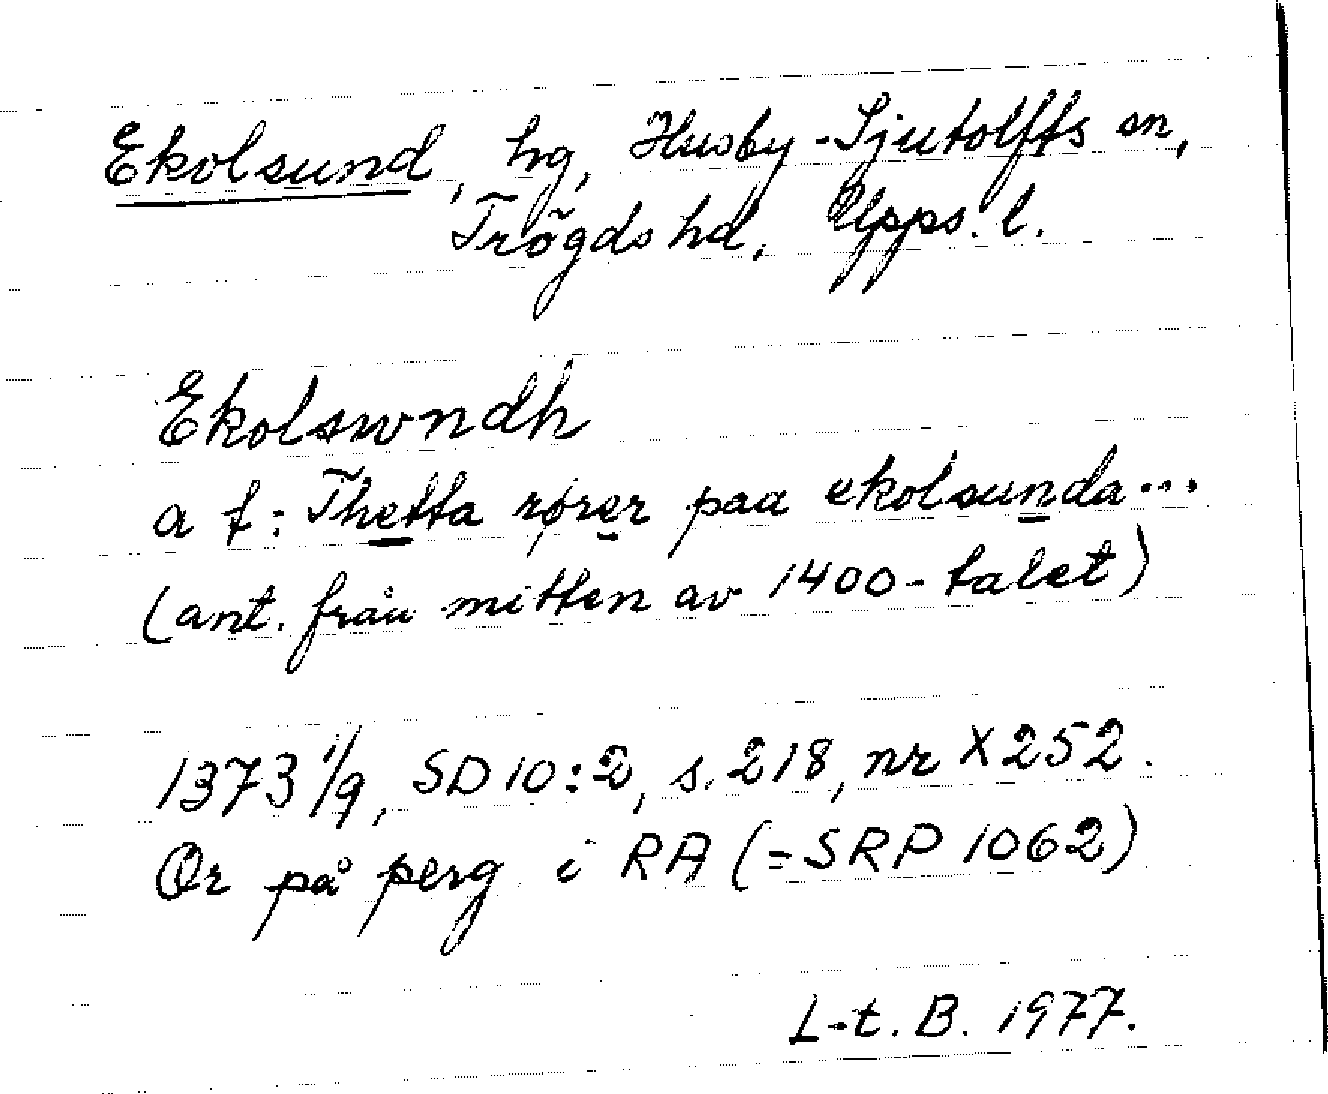 Ekolsund, hg, Husby-Sjutolfts sn,
Trögds hd, Upps. l.
Ekolswndh
a t: Thetta rører paa ekolsunda...
(ant. från mitten av 1400-talet)
1373 1/9, SD 10:2, s. 218, nr X252.
Or på perg i RA (=SRP 1062)
L-t. B. 1977.